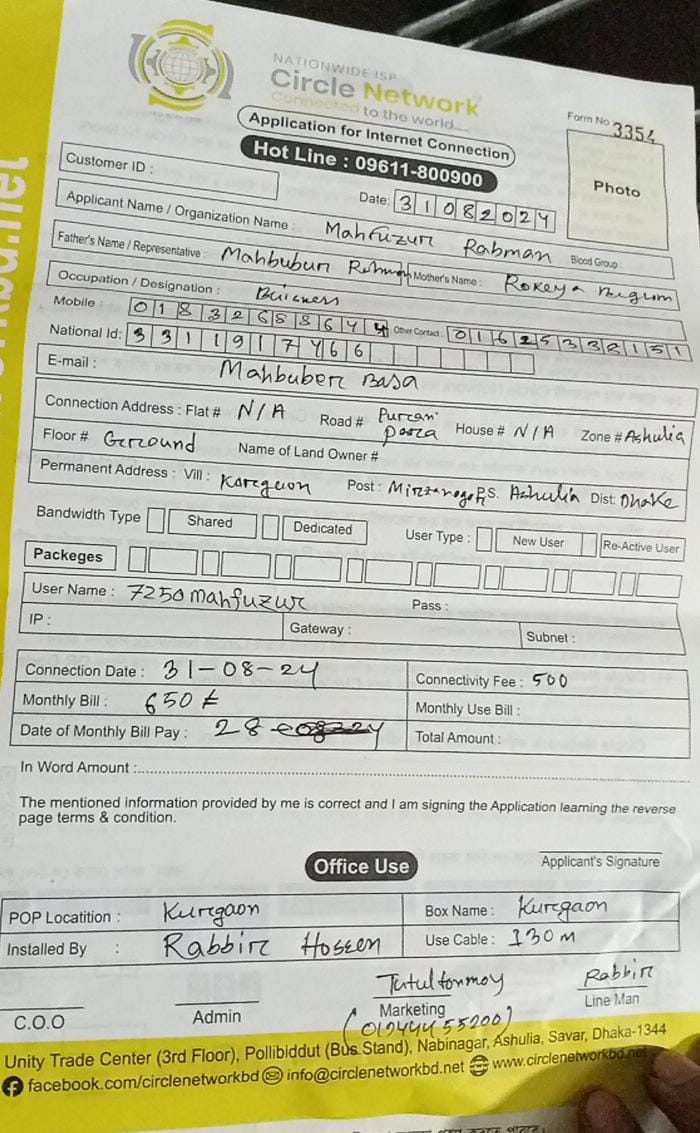 NATIONWIDE ISP
Circle Network
Connected to the world...
Application for Internet Connection
Hot Line : 09611-800900
Form No 3354
Photo
Customer ID :
Date: 31082024
Applicant Name / Organization Name : Mahfuzur Rahman Blood Group :
Father's Name / Representative : Mahbubur Rahman Mother's Name : Rokeya Begum
Occupation / Designation : Buisness
Mobile : 01832688644 Other Contact : 01625338151
National Id: 3311917466
E-mail : Mahbuber Basa
Connection Address : Flat # N/A Road # Puran Para House # N/A Zone # Ashulia
Floor # Ground Name of Land Owner #
Permanent Address : Vill : Korgaon Post : P.S. Ashulia Dist: Dhake
Bandwidth Type Shared Dedicated User Type : New User Re-Active User
Packeges
User Name : 7250mahfuzur Pass :
IP : Gateway : Subnet :
Connection Date : 31-08-24 Connectivity Fee : 500
Monthly Bill : 650 ৳ Monthly Use Bill :
Date of Monthly Bill Pay : 28 Total Amount :
In Word Amount :
The mentioned information provided by me is correct and I am signing the Application learning the reverse
page terms & condition.
Applicant's Signature
Office Use
POP Locatition : Kurgaon Box Name : Kurgaon
Installed By : Rabbir Hossen Use Cable : 130 m
Tutul tonmoy Rabbir
C.O.O Admin Marketing Line Man
(01944455200)
Unity Trade Center (3rd Floor), Pollibiddut (Bus Stand), Nabinagar, Ashulia, Savar, Dhaka-1344
facebook.com/circlenetworkbd info@circlenetworkbd.net www.circlenetworkbd.net